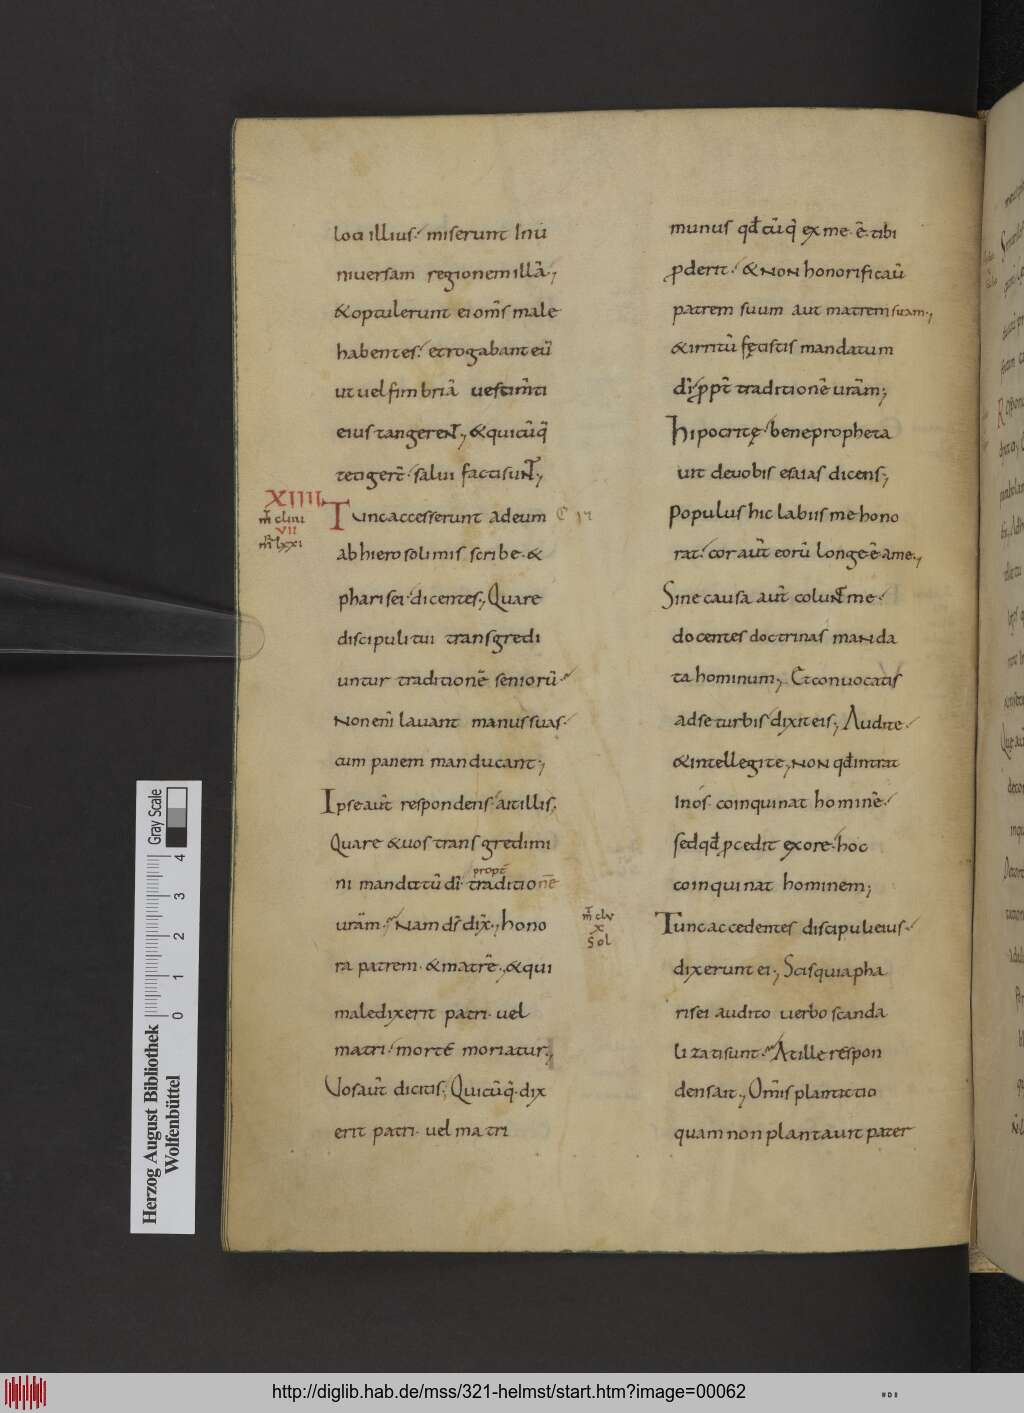 loci illius· miserunt Inū
niuersam regionem illā·,
&optulerunt ei om̄s male
habentes· et rogabant eū
ut uel fimbriā uestim̄ti
eius tangerent·, &quicūq̄
tetiger̄t· salui facti sunt·,
XIIII
m̄t cliiii
VII
m̄r lxxi
Tunc accesserunt ad eum
ab hierosolimis scribe·&
pharisei·dicentes·, Quare
discipuli tui transgredi
untur traditionē seniorū·
Non enī lauant manus suas·
cum panem manducant·,
Ipse aut̄ respondens· ait illis·,
Quare &uos transgredimi
ni mandatū dī· propt̄ traditionē
urām·, Nam ds̄ dix̄·, hono
ra patrem·&matrē·,&qui
maledixerit patri·uel
matri· mortē moriatur·,
Vos aut̄ dicitis·, Quicūq̄·dix
erit patri·uel matri
munus qđcūq̄ ex me·ē·tibi
pderit· &non honorificaū
patrem suum aut matrem suam·,
&irritū fecistis mandatum
dī·ppt̄ traditionē urām·,
hipocritę·bene propheta
uit de uobis esaias dicens·,
Populus hic labiis me hono
rat· cor aut̄ eorū longe·ē·a me·,
Sine causa aut̄ colunt me·
docentes doctrinas manda
ta hominum·, Et conuocatis
ad se turbis dixit eis·, Audite·
&intellegite·, non qđ intrat
In os· coinquinat hominē·
sed qđ pcedit ex ore· hoc
coinquinat hominem·,
m̄t clv
x
Sol
Tunc accedentes discipuli eius·
dixerunt ei·, Scis quia pha
risei audito uerbo scanda
lizati sunt· At ille respon
dens ait·, Om̄is plantatio
quam non plantauit pater
Gray Scale
0 1 2 3 4
Herzog August Bibliothek
Wolfenbüttel
http://diglib.hab.de/mss/321-helmst/start.htm?image=00062